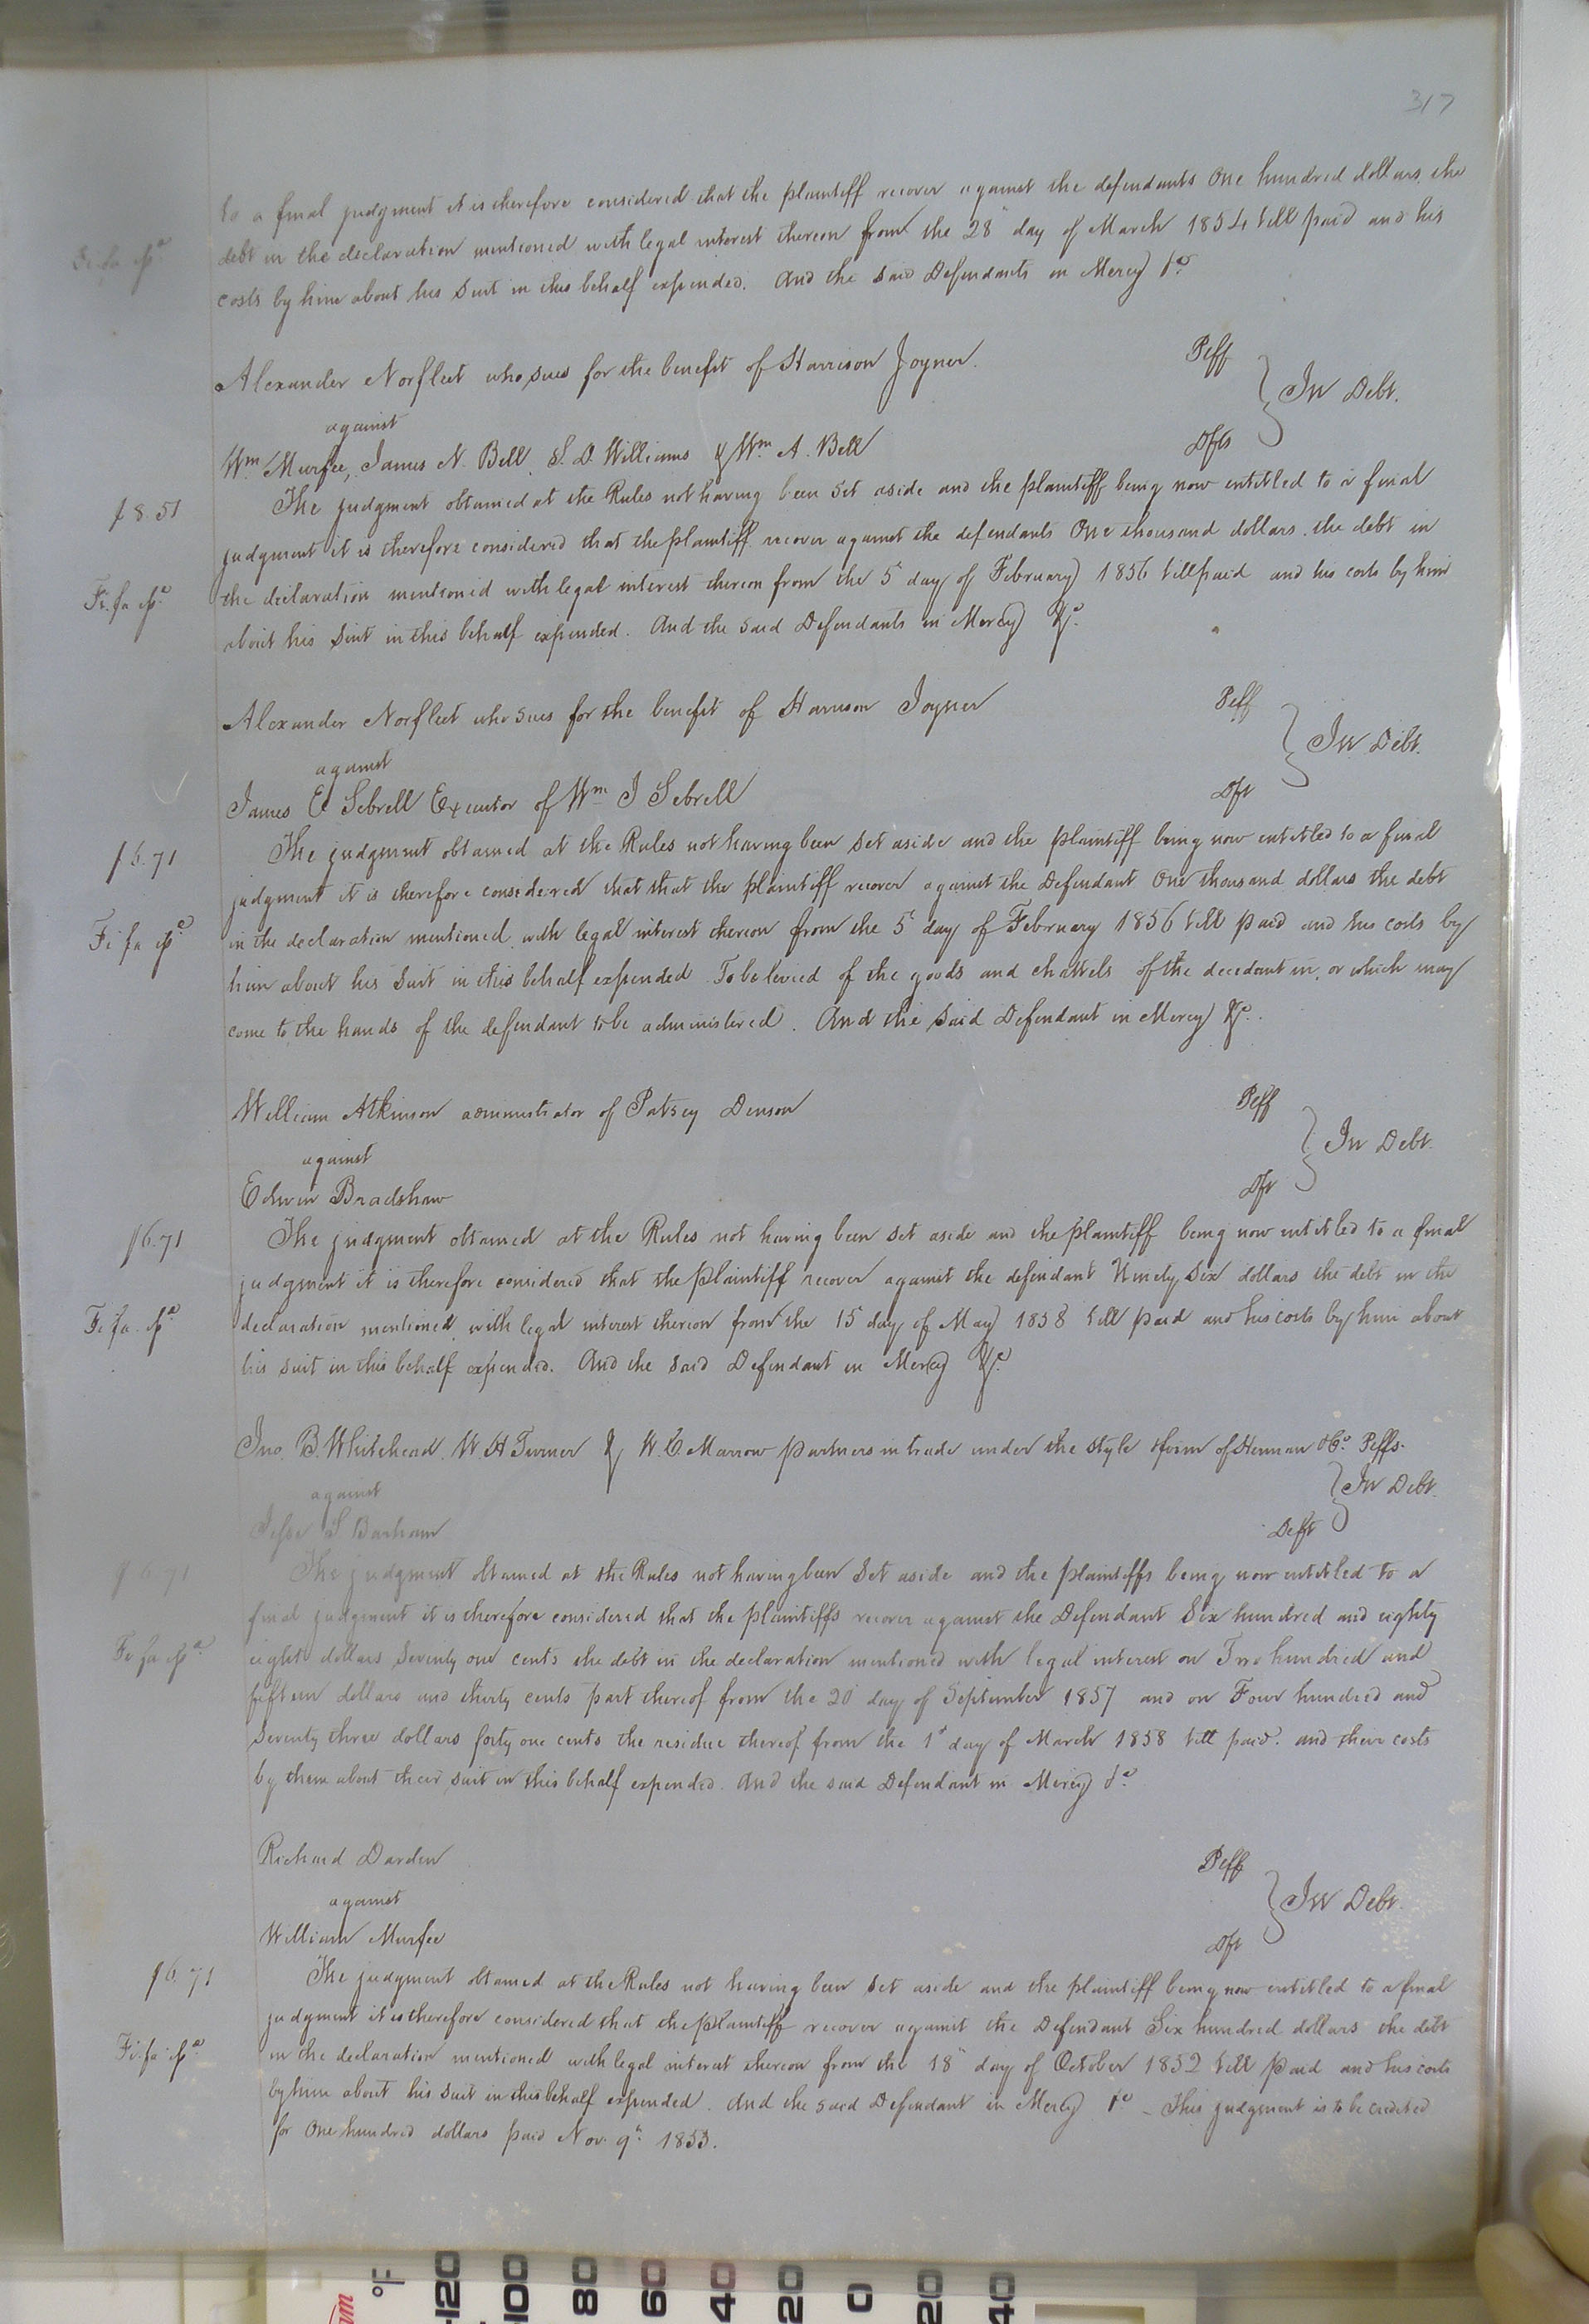 317
to a final judgment it is therefore considered that the plaintiff recover against the defendants One hundred dollars, the
debt in the declaration mentioned with legal interest thereon from the 28" day of March 1854 till paid and his
Fi. fa
costs by him about his suit in this behalf expended. And the said Defendants in Mercy &c
Alexander Norfleet who sues for the benefit of Harrison Joyner. Plff
against } In Debt.
Wm Murfee, James N. Bell, S. D. Williams & Wm A. Bell Dfts
$8.51 The judgment obtained at the Rules not having been set aside and the plaintiff being now entitled to a final
judgment it is therefore considered that the plaintiff recover against the defendants One thousand dollars. the debt in
Fi. fa the declaration mentioned with legal interest thereon from the 5 day of February 1856 till paid and his costs by him
about his suit in this behalf expended. And the said Defendants in Mercy &c.
Alexander Norfleet who sues for the benefit of Harrison Joyner Plff
against } In Debt.
James E Sebrell Executor of Wm J Sebrell Dft
$6.71 The judgment obtained at the Rules not having been set aside and the plaintiff being now entitled to a final
judgment it is therefore considered that that the plaintiff recover against the Defendant One thousand dollars the debt
Fi fa in the declaration mentioned with legal interest thereon from the 5 day of February 1856 till paid and his costs by
him about his suit in this behalf expended To be levied of the goods and chattels of the decedant in, or which may
come to the hands of the defendant to be administered. And the said Defendant in Mercy &c.
William Atkinson administrator of Patsey Denson Plff
against } In Debt.
Edwin Bradshaw Dft
$6.71 The judgment obtained at the Rules not having been set aside and the plaintiff being now entitled to a final
judgment it is therefore considered that the plaintiff recover against the defendant Ninety six dollars the debt in the
Fi fa declaration mentioned with legal interest thereon from the 15 day of May 1858 till paid and his costs by him about
his suit in this behalf expended. And the said Defendant in Mercy &c.
Jno. B. Whitehead, W. H Turner & W. C. Marrow partners in trade under the style & firm of &Co. Plffs.
against } In Debt.
Jesse S Barham Deft
$6.71 The judgment obtained at the Rules not having been set aside and the plaintiffs being now entitled to a
final judgment it is therefore considered that the plaintiffs recover against the Defendant Six hundred and eighty
Fi fa eight dollars Seventy one cents the debt in the declaration mentioned with legal interest on Two hundred and
fifteen dollars and thirty cents part thereof from the 20 day of September 1857 and on Four hundred and
Seventy three dollars forty one cents the residue thereof from the 1st day of March 1858 till paid. and their costs
by them about their suit in this behalf expended. And the said Defendant in Mercy &c
Richard Darden Plff
against } In Debt.
William Murfee Dft
$6.71 The judgment obtained at the Rules not having been set aside and the plaintiff being now entitled to a final
judgment it is therefore considered that the plaintiff recover against the Defendant Six hundred dollars the debt
Fi. fa in the declaration mentioned with legal interest thereon from the 18" day of October 1852 till paid and his costs
by him about his suit in this behalf expended. And the said Defendant in Mercy &c - This judgment is to be credited
for One hundred dollars paid Nov. 9th 1853.
°F 120 100 80 60 40 20 0 20 40